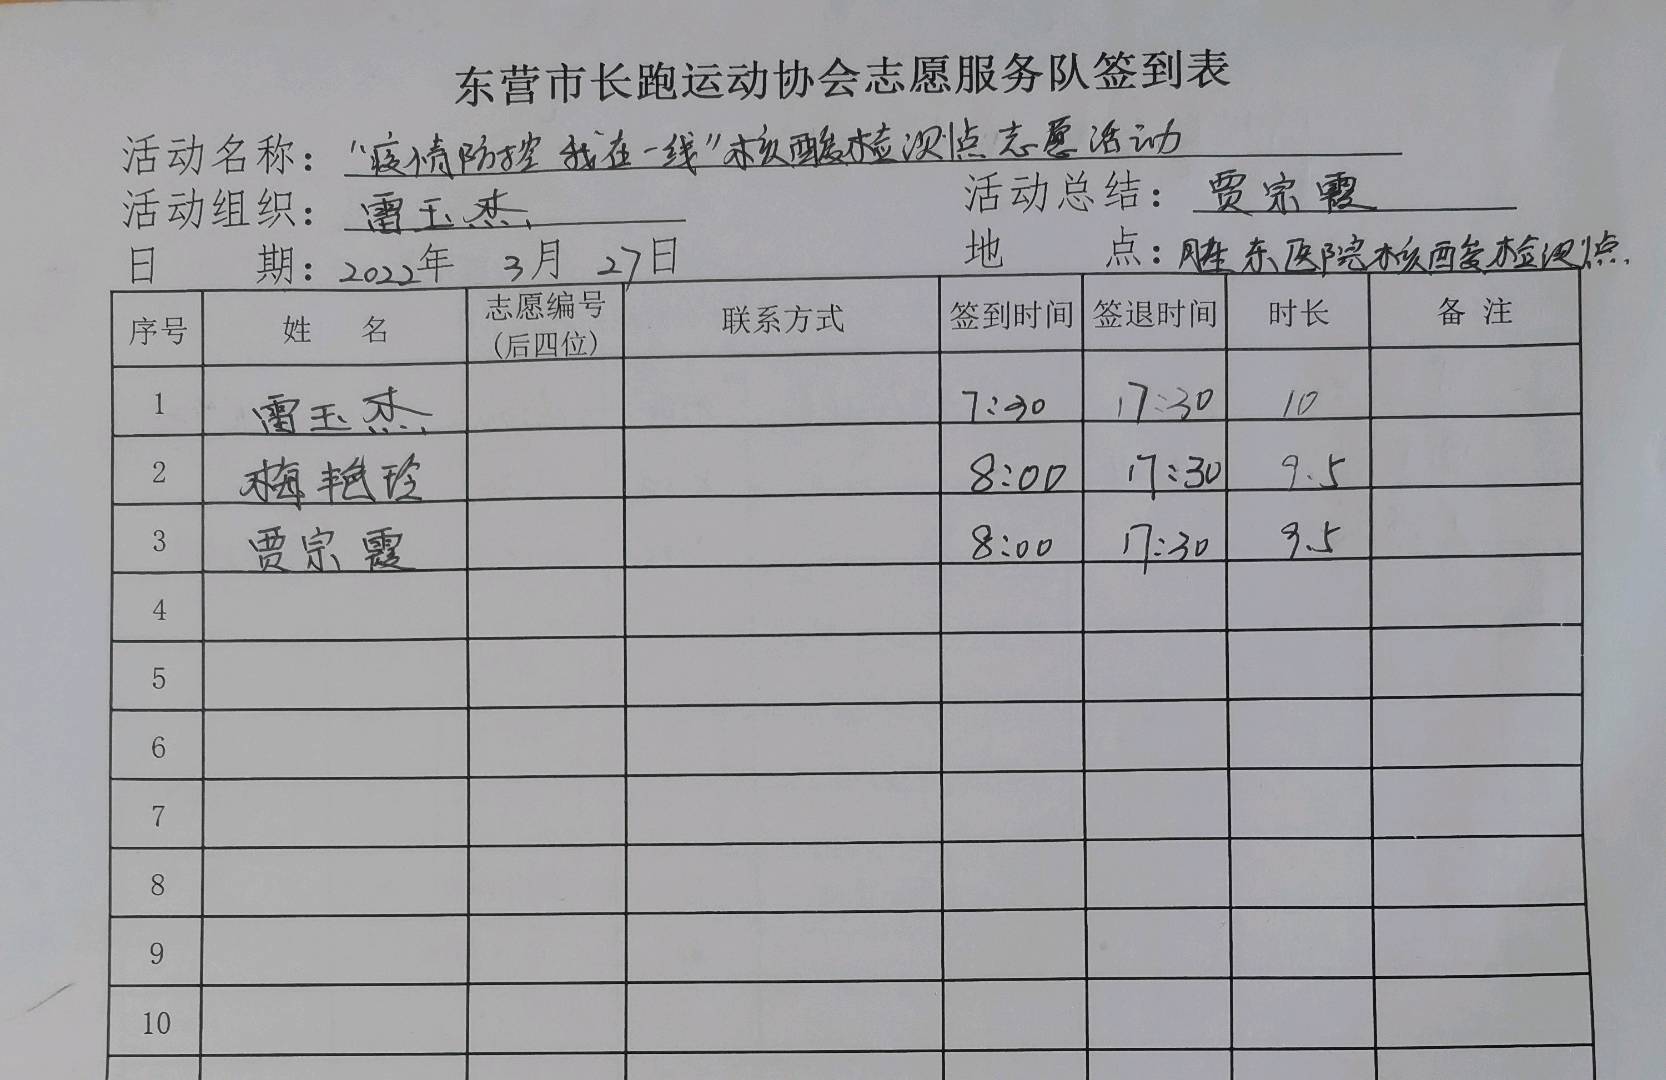 东营市长跑运动协会志愿服务队签到表
活动名称：“疫情防控 我在一线”核酸检测点志愿活动
活动组织：雷玉杰 活动总结：贾宗霞
日 期：2022年 3月 27日 地 点：胜东医院核酸检测点.
序号 姓 名 志愿编号(后四位) 联系方式 签到时间 签退时间 时长 备 注
1 雷玉杰 7:30 17:30 10
2 梅艳玲 8:00 17:30 9.5
3 贾宗霞 8:00 17:30 9.5
4
5
6
7
8
9
10